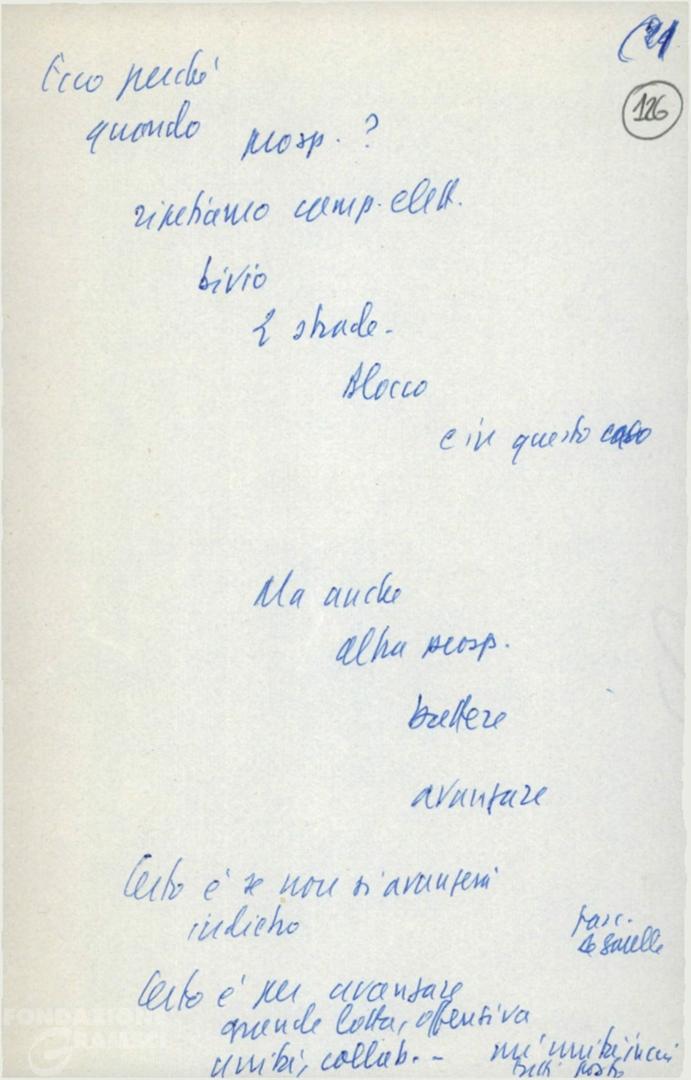 (21
126
Ecco perché
quando prosp. ?
ripetiamo camp. elett.
bivio
2 strade -
Blocco
e in questo caso
Ma anche
altra prosp.
battere
avanzare
Certo è se non si avanzerà
indietro
Fasc.
De Gaulle
Certo è per avanzare
grande lotta, offensiva
unità, collab. - un'unità in cui
tutti
FONDAZIONE
GRAMSCI